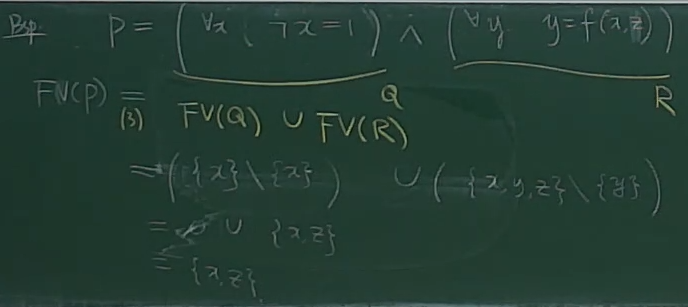 Bsp. P = (∀x (¬x=1)) ∧ (∀y y=f(x,z))
Q R
FV(P) =(3) FV(Q) ∪ FV(R)
= ({x}\{x}) ∪ ({x,y,z}\{y})
= ∅ ∪ {x,z}
= {x,z}.